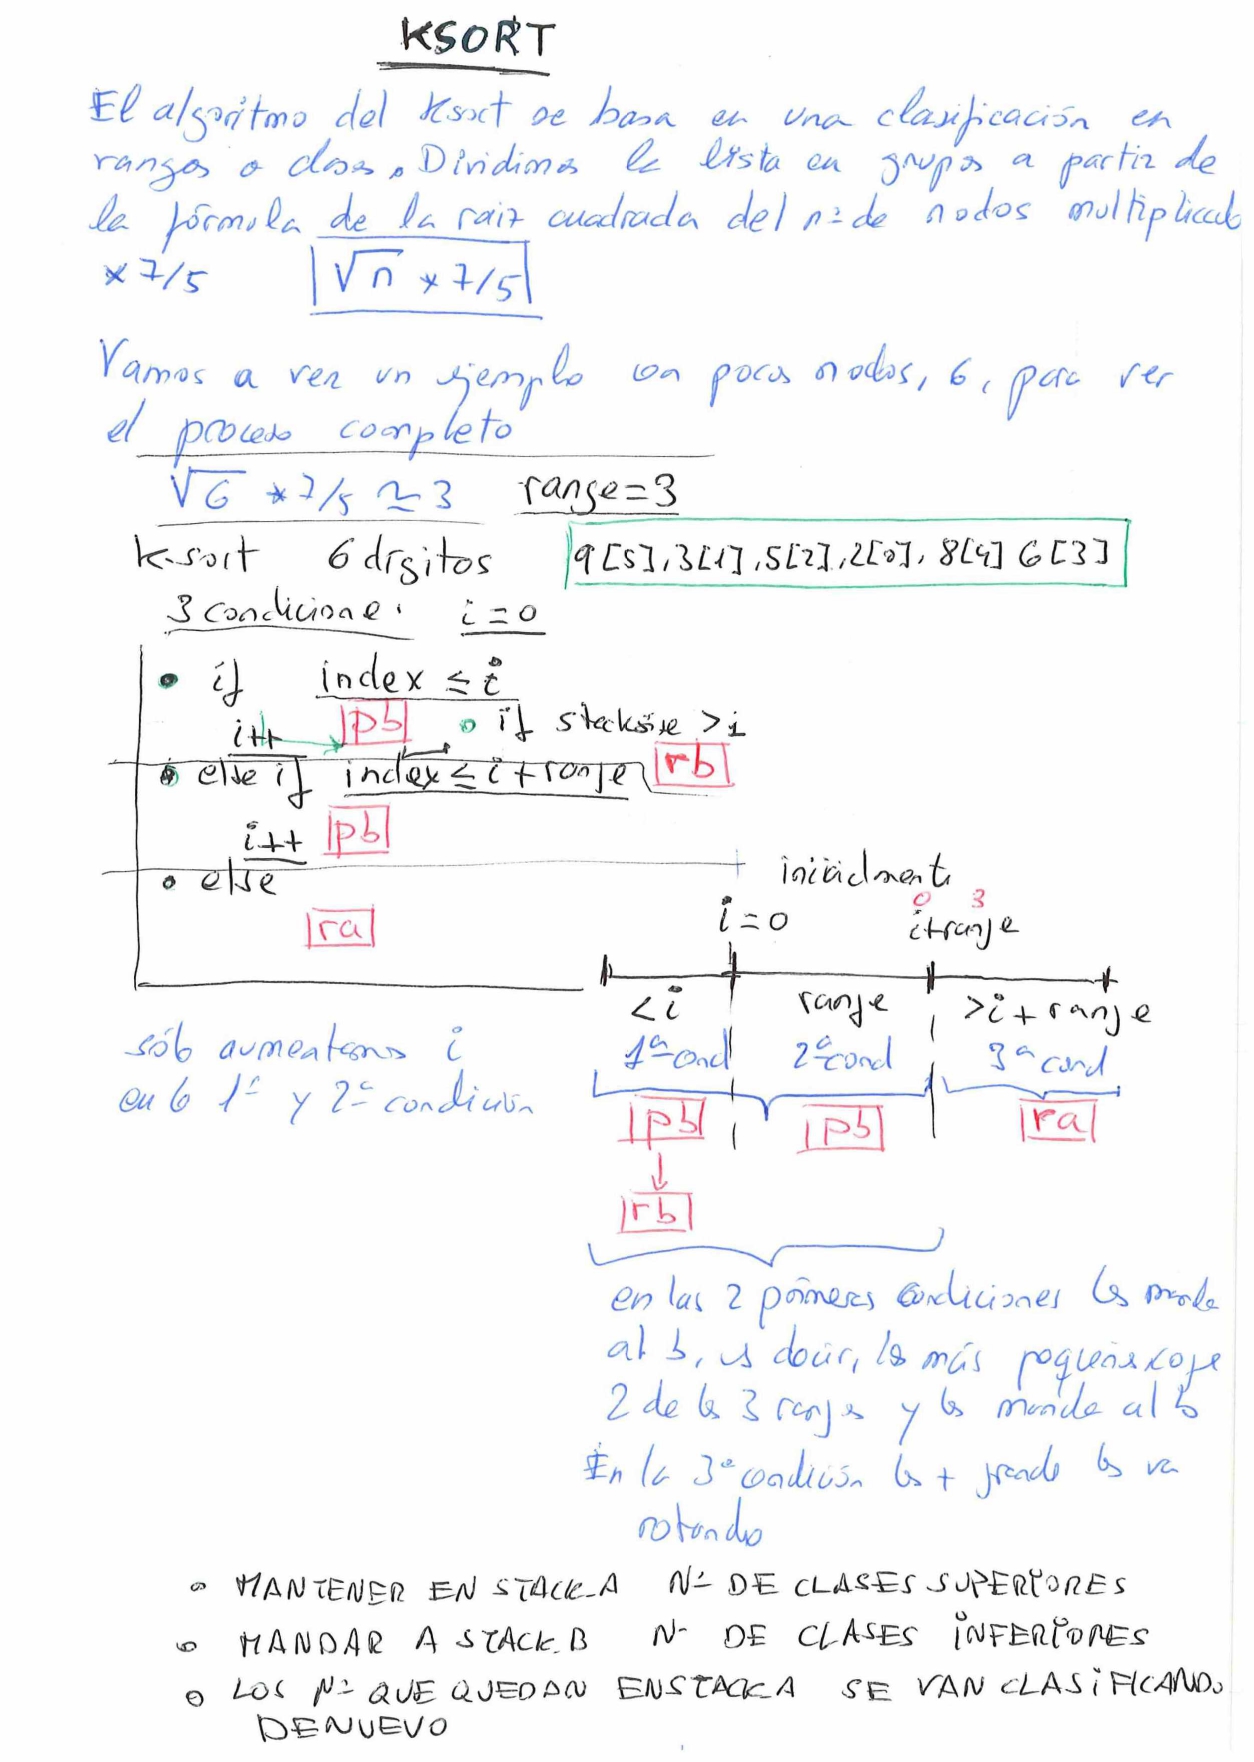 KSORT
El algoritmo del Ksort se basa en una clasificación en
rangos o clases. Dividimos la lista en grupos a partir de
la fórmula de la raiz cuadrada del nº de nodos multiplicado
x 7/5 √n * 7/5
Vamos a ver un ejemplo con pocos nodos, 6, para ver
el proceso completo
√6 * 7/5 ≃ 3 range=3
k-sort 6 dígitos 9[5],3[1],5[2],2[0],8[4] 6[3]
3 condicione. i=0
• if index ≤ i
i++ pb • if stacksize >1
• else if index ≤ i + range rb
i++ pb
• else
ra
inicialmente
0 3
i=0 i+range
<i range >i + range
1ª cond 2ª cond 3ª cond
pb pb ra
rb
sólo aumentamos i
en la 1ª y 2ª condición
en las 2 primeras condiciones los manda
al b, es decir, los más pequeños coge
2 de los 3 ranges y los manda al b
En la 3ª condición los + grande los va
rotando
• MANTENER EN STACK_A Nº DE CLASES SUPERIORES
• MANDAR A STACK_B Nº DE CLASES INFERIORES
• LOS Nº QUE QUEDAN EN STACK_A SE VAN CLASIFICANDO
DE NUEVO